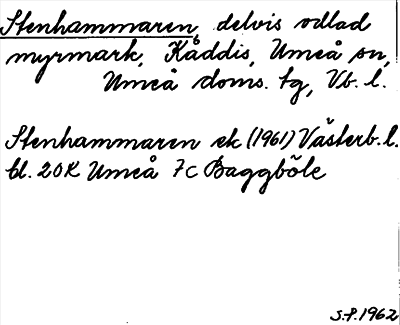 Stenhammaren, delvis odlad
myrmark, Kåddis, Umeå sn,
Umeå doms. tg, Vb. l.
Stenhammaren ek (1961) Västerb. l.
bl. 20K Umeå 7c Baggböle
S.P. 1962